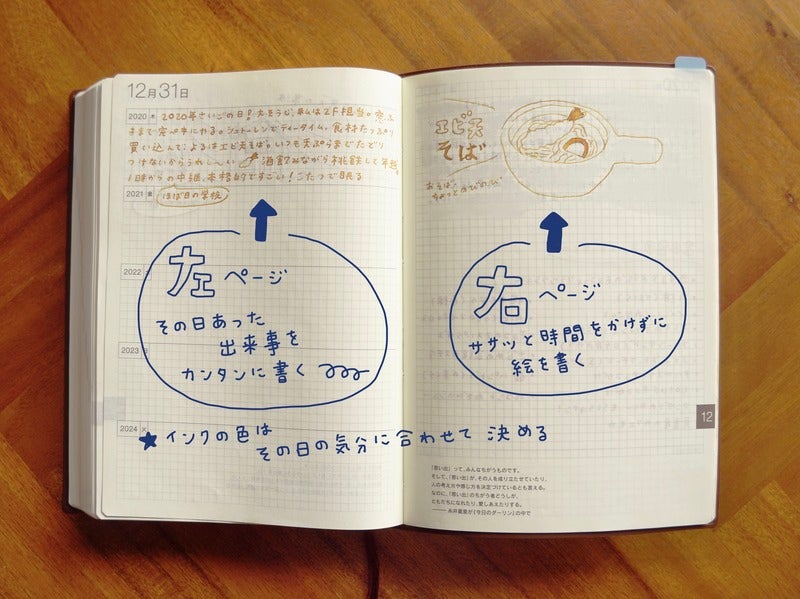 12月31日
2020 木
2020年さいごの日！大そうじ、私は2F担当。窓ふ
きまで完ペキにやる。シュトーレンでティータイム。食材たっぷり
買い込んで、よるはエビ天そば。いつも天ぷらまでたどり
つけないからうれしーい 酒飲みながら桃鉄して年越し
1時からの中継、本格的ですごい！こたつで眠る
2021 金
ほぼ日の学校
左ページ
その日あった
出来事を
カンタンに書く
2022
2023
2024 火
★インクの色は
その日の気分に合わせて 決める
エビ天
そば
おそば、
ちょっとのびのび
右ページ
ササッと時間をかけずに
絵を書く
12
「思い出」って、みんなちがうものです。
そして、「思い出」が、その人を成り立たせていたり、
人の考え方や感じ方を決定づけているとも言える。
なのに、「思い出」のちがう者どうしが、
ともだちになれたり、愛しあえたりする。
――糸井重里が『今日のダーリン』の中で